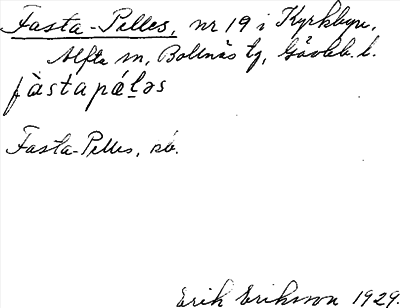 Fasta-Pelles, nr 19 i Kyrkbyn,
Alfta sn, Bollnäs tg, Gävleb. l.
fàstapáḷəs
Fasta-Pelles, sb.
Erik Eriksson 1929.